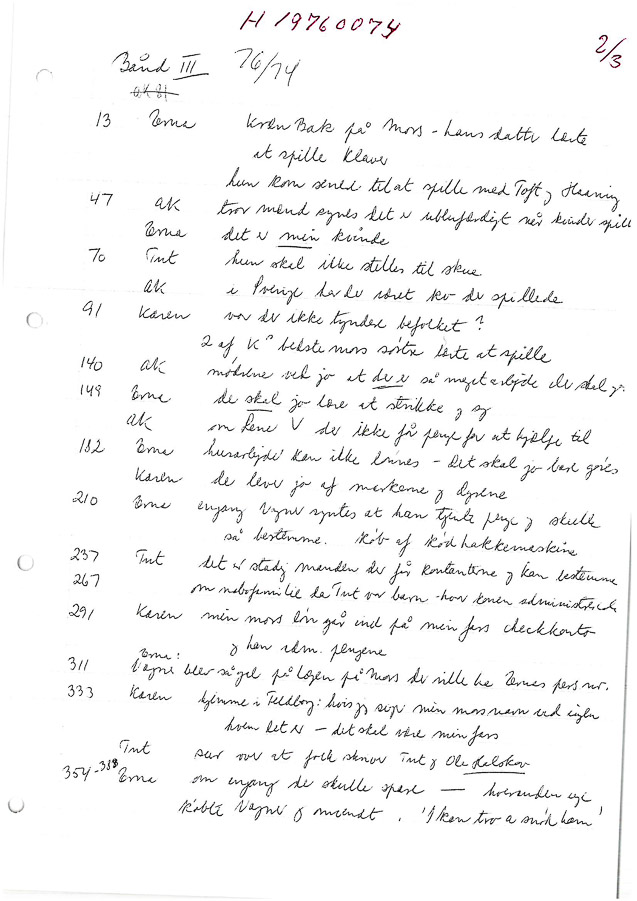 H 19760074
2/3
Bånd III 76/74
AK 81
13 Erna Kræn Bak på Mors - hans datter lærte
at spille klaver
hun kom senere til at spille med Toft og Haaning
47 AK tror mænd synes det er ublufærdigt når kvinder spill
Erna det er min kvinde
70 Tut hun skal ikke stilles til skue
AK i Sverige har der været kv. der spillede
91 Karen var der ikke tyndere befolket?
2 af K's bedstemors søstre lærte at spille
140 AK mødrene ved jo at der er så meget arbejde de skal g.
149 Erna de skal jo lære at strikke og sy
AK om Lene V der ikke får penge for at hjælpe til
182 Erna husarbejde kan ikke lønnes - Det skal jo bare gøres
Karen de lever jo af markerne og dyrene
210 Erna engang Vagner syntes at han tjente penge og skulle
så bestemme. Køb af kødhakkemaskine
237 Tut det er stadig manden der får kontanterne og kan bestemme
267 om nabofamilie da Tut var barn - hvor konen administrerede
291 Karen min mors løn går ind på min fars checkkonto
og han adm. pengene
311 Erna: Vagner blev så gal på lægen på Mors der ville ha Ernas pers nr.
333 Karen hjemme i Feldborg: hvis jeg siger min mors navn ved
hvem det er - det skal være min fars
Tut sur over at folk skriver Tut og Ole Kalskov
354-388 Erna om engang de skulle spare — hveranden uge
købte Vagner og . 'I kan tro a ham'